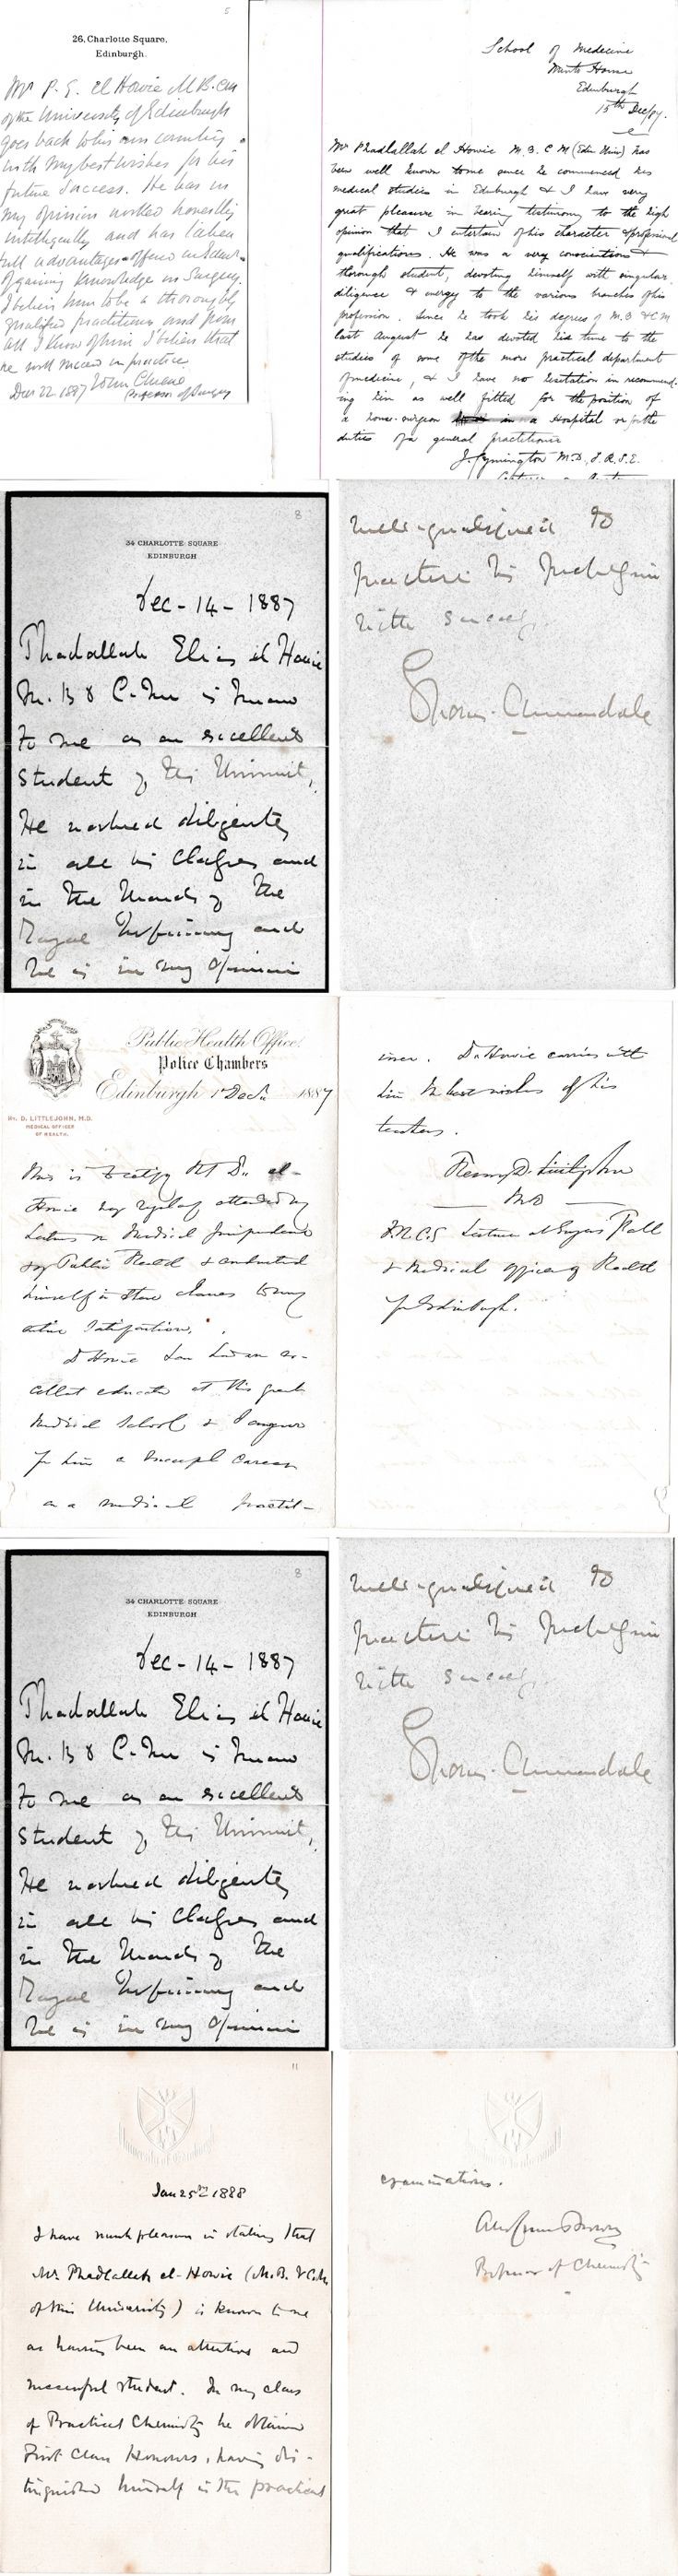 5
26, Charlotte Square,
Edinburgh.
Mr P. E. el Howie M.B. CM
of the University of Edinburgh
goes back to his own country
with my best wishes for his
future success. He has in
my opinion worked honestly
intelligently and has taken
full advantage
of gaining knowledge in Surgery.
I believe him to be a thoroughly
qualified practitioner and from
all I know of him I believe that
he will succeed in practice.
Dec 22 1887 John Chiene
Professor of Surgery
School of Medicine
Minto House
Edinburgh
15th Dec/87.
Mr Phadlallah el Howie M.B. C.M (Edin Univ) has
been well known to me since he commenced his
medical studies in Edinburgh & I have very
great pleasure in bearing testimony to the high
opinion that I entertain of his character & professional
qualifications. He was a very conscientious &
thorough student, devoting himself with singular
diligence & energy to the various branches of his
profession. Since he took his degrees of M.B & C.M
last August he has devoted his time to the
studies of some of the more practical department
of medicine, & I have no hesitation in recommend-
ing him as well fitted for the position of
a house-surgeon in a Hospital or for the
duties of a general practitioner
J. Symington M.D., F.R.S.E.
8
34 CHARLOTTE SQUARE
EDINBURGH
Dec - 14 - 1887
Phadallah Elias el Howie
M.B & C.M is known
to me as an excellent
student of this University,
He worked diligently
in all his classes and
in the Wards of the
Royal Infirmary and
he is in my opinion
well qualified to
practise his profession
with success.
Thomas Annandale
Public Health Office,
Police Chambers
Edinburgh 1st Decr. 1887
HY. D. LITTLEJOHN, M.D.
MEDICAL OFFICER
OF HEALTH.
This is to certify that Dr. el-
Howie has regularly attended my
Lectures on Medical Jurisprudence
& Public Health & conducted
himself in these classes to my
entire satisfaction.
Dr Howie has had an ex-
cellent education at this great
Medical School & I augur
for him a successful career
as a medical practit-
ioner. Dr Howie carries with
him the best wishes of his
teachers.
Henry D. Littlejohn
MD
F.R.C.S Lecturer at Surgeons Hall
& Medical Officer of Health
for Edinburgh.
8
34 CHARLOTTE SQUARE
EDINBURGH
Dec - 14 - 1887
Phadallah Elias el Howie
M.B & C.M is known
to me as an excellent
student of this University,
He worked diligently
in all his classes and
in the Wards of the
Royal Infirmary and
he is in my opinion
well qualified to
practise his profession
with success.
Thomas Annandale
11
Jan 25th 1888
I have much pleasure in stating that
Mr. Phadlallah el-Howie (M.B. & C.M.
of this University) is known to me
as having been an attentive and
successful student. In my class
of Practical Chemistry he obtained
First Class Honours, having dis-
tinguished himself in the practical
examinations.
Alex Crum Brown
Professor of Chemistry